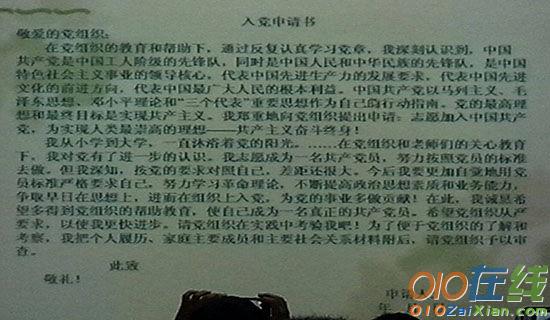 入党申请书
敬爱的党组织：
在党组织的教育和帮助下，通过反复认真学习党章，我深刻认识到，中国
共产党是中国工人阶级的先锋队，同时是中国人民和中华民族的先锋队，是中国
特色社会主义事业的领导核心，代表中国先进生产力的发展要求，代表中国先进
文化的前进方向，代表中国最广大人民的根本利益。中国共产党以马列主义、毛
泽东思想、邓小平理论和“三个代表”重要思想作为自己的行动指南。党的最高理
想和最终目标是实现共产主义。我郑重地向党组织提出申请：志愿加入中国共产
党，为实现人类最崇高的理想——共产主义奋斗终身！
我从小学到大学，一直沐浴着党的阳光。……在党组织和老师们的关心教育
下，我对党有了进一步的认识。我志愿成为一名共产党员，努力按照党员的标准
去做。但我深知，按党的要求对照自己，差距还很大。今后我要更加自觉地用党
员标准严格要求自己，努力学习革命理论，不断提高政治思想素质和业务能力，
争取早日在思想上，进而在组织上入党，为党的事业多做贡献！在此，我诚恳希
望多得到党组织的帮助教育，使自己成为一名真正的共产党员。希望党组织从严
要求，以使我更快进步。请党组织在实践中考验我吧！为了便于党组织的了解和
考察，我把个人履历、家庭主要成员和主要社会关系材料附后，请党组织予以审
查。
此致
敬礼！
申请
年
010在线
010ZaiXian.com